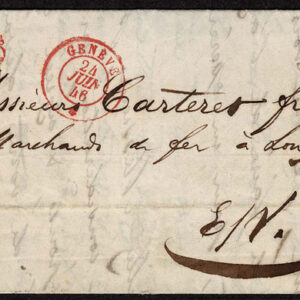 GENÈVE
24
JUIN
46
Messieurs Carteres fr
Marchands de fer à Lou
E/V.